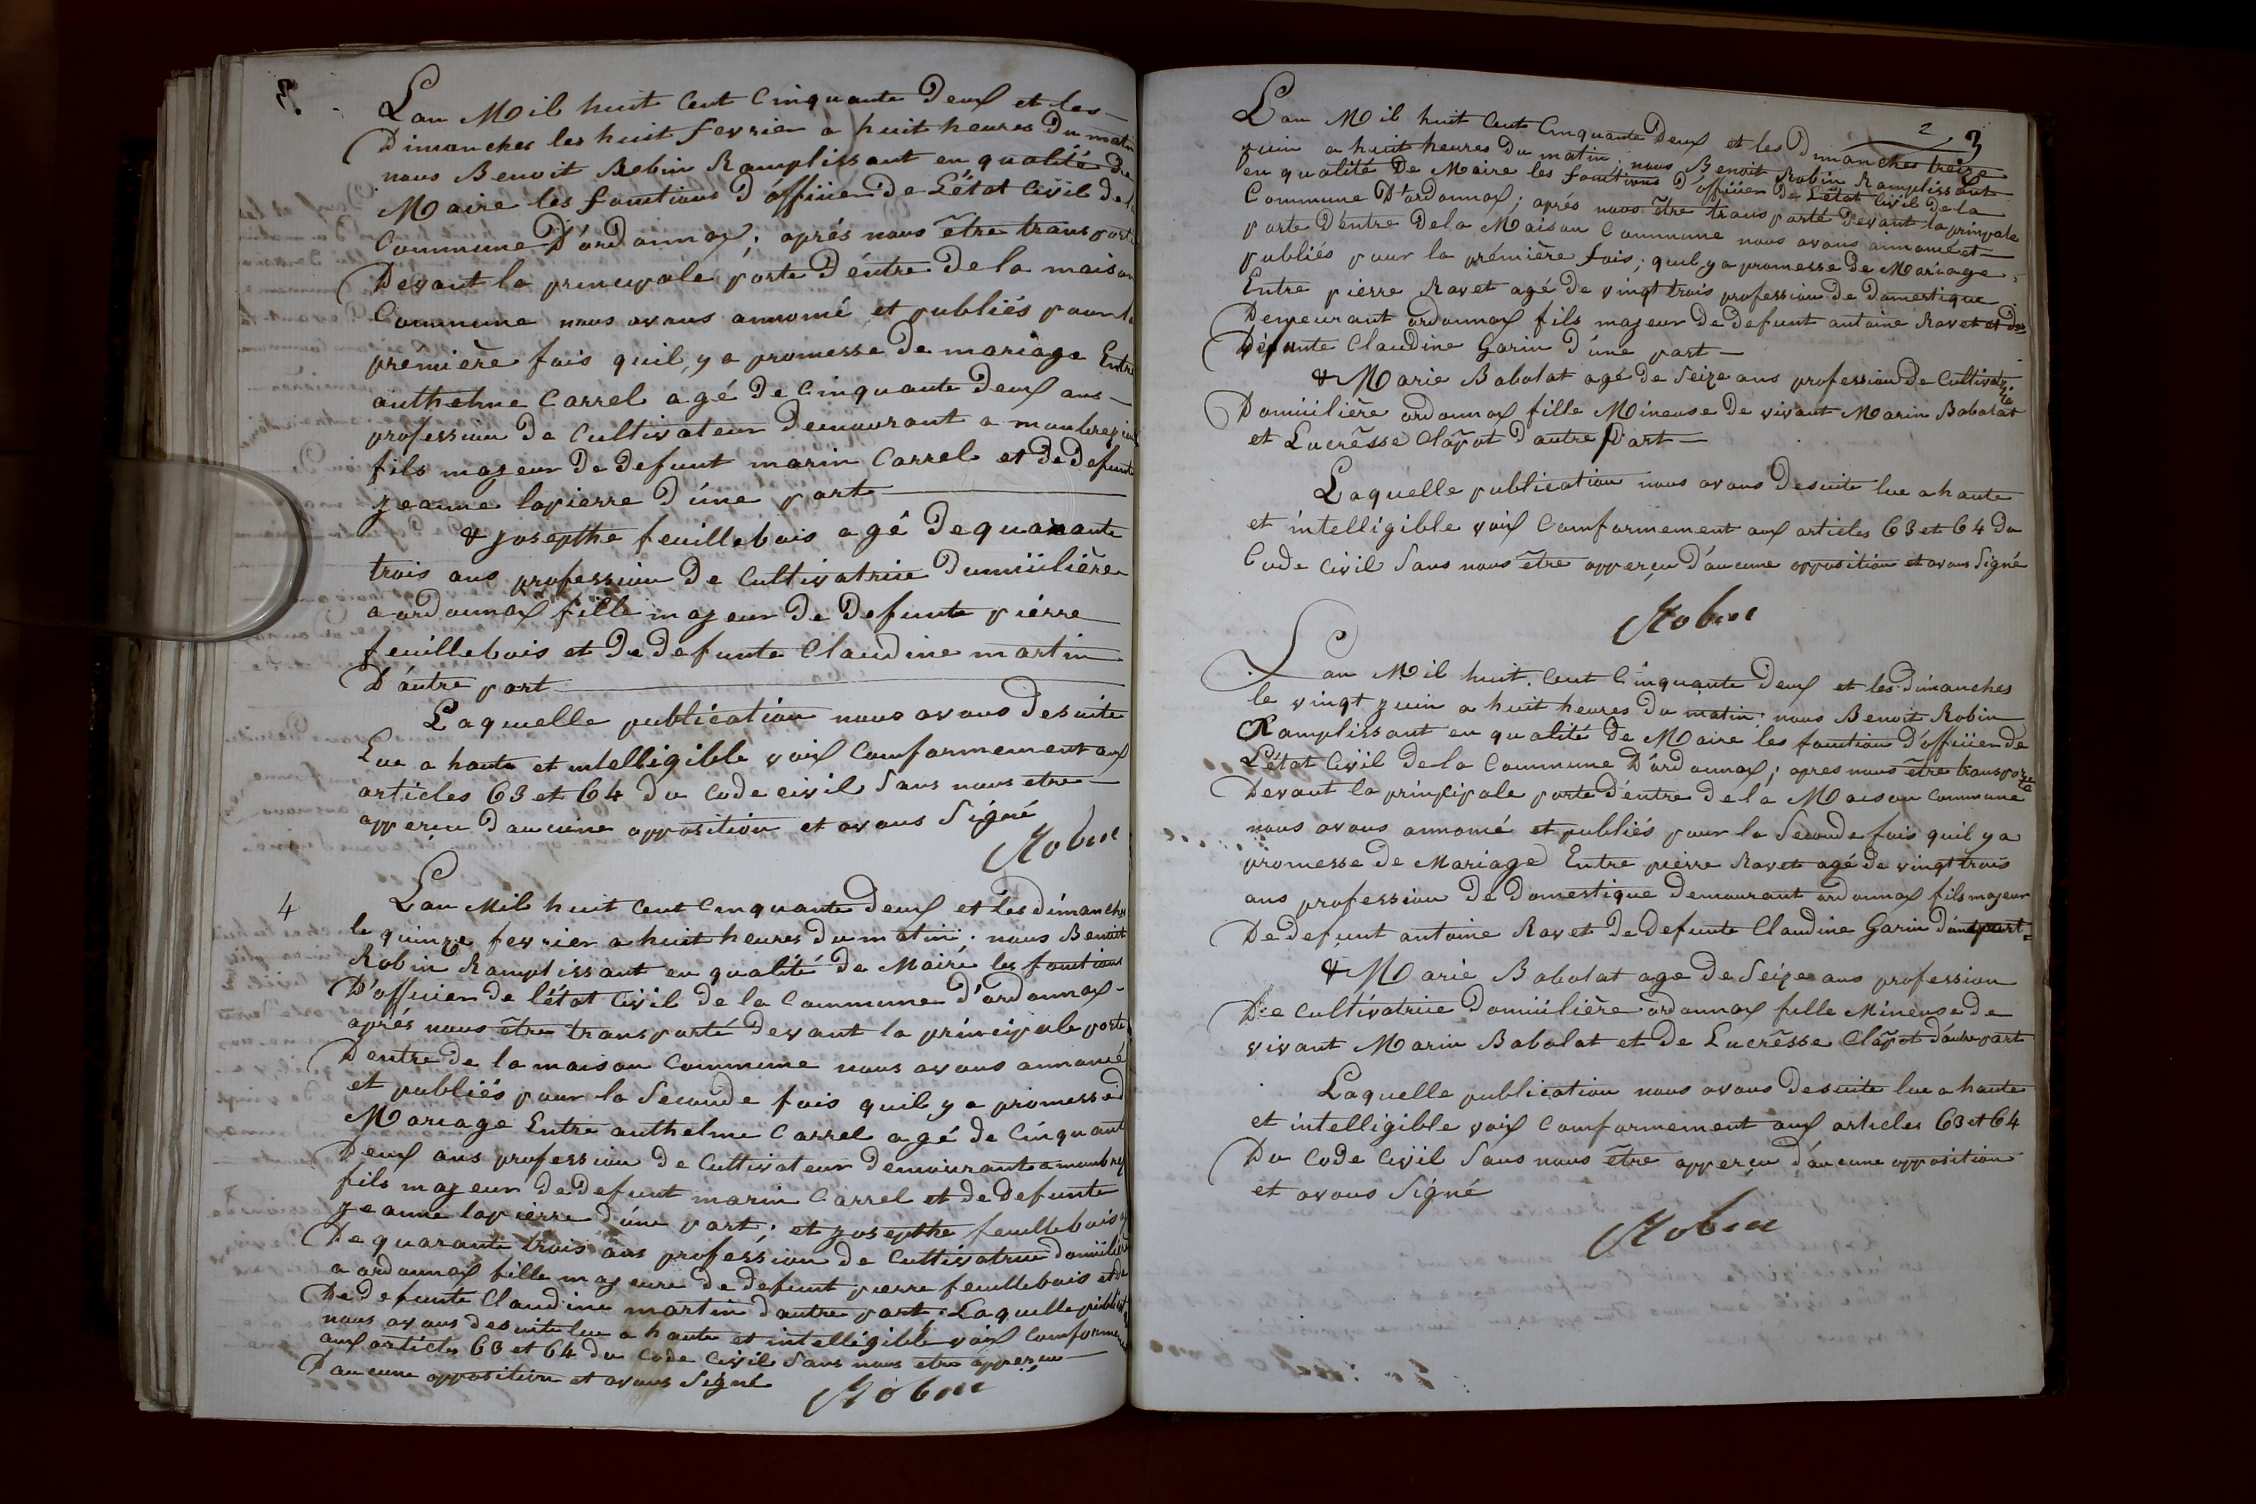 3
L'an Mil huit Cent Cinquante Deux et les
Dimanches les huit fevrier a huit heures Du matin
nous Benoit Robin Ramplissant en qualité De
Maire les fonctions D'officier de L'état Civil de la
Commune D'ordonnax; aprés nous être transporté
Devant la principale porte D'entre De la maison
Commune nous avons annoncé et publiés pour la
première fois quil, y a promesse De mariage Entre
anthelme Carrel agé De Cinquante Deux ans
profession De Cultivateur Demourant a
fils majeur De defunt marin Carrel et De defunte
jeanne lapierre D'une part
& josepthe feuillebois agé De quarante
trois ans profession De Cultivatrice Domicilière
a ordonnax fille majeur De Defunte pierre
feuillebois et De defunte Claudine martin
D'autre part
Laquelle publication nous avons Desuite
Lue a haute et intelligible voix Comformement aux
articles 63 et 64 du Code civil Sans nous etre
apperçu d'aucune opposition et avons Signé
Robin
4
L'an Mil huit Cent Cinquante Deux et les dimanches
le quinze fevrier a huit heures Du matin; nous Benoit
Robin Ramplissant en qualité De Maire les fonctions
D'officier de l'état Civil de la Commune d'ordonnax
aprés nous être transporté devant la principale porte
D'entre de la maison Commune nous avons annoncé
et publiés pour la Seconde fois quil y a promesse d
Mariage Entre anthelme Carrel agé de Cinquante
Deux ans profession de Cultivateur demourant a
fils majeur De defunt marin Carrel et de defunte
jeanne lapierre d'une part; et josepthe feuillebois
De quarante trois ans profession de Cultivatrice domicilière
a ordonnax fille majeure de defunt pierre feuillebois et de
De defunte Claudine martin d'autre part. Laquelle publication
nous avons desuite lue a haute et intelligible voix Comformement
aux articles 63 et 64 du Code Civil Sans nous etre apperçu
D'aucune opposition et avons Signé
Robin
2
3
L'an Mil huit Cent Cinquante Deux et les Dimanches treize
juin a huit heures Du matin; nous Benoit Robin Ramplissant
en qualité De Maire les fonctions D'officier De L'état Civil De la
Commune D'ordonnax; aprés nous être transporté Devant la principale
porte D'entre De la Maison Commune nous avons annoncé et
publiés pour la première fois; quil, y a promesse De Mariage
Entre pierre Ravet agé De vingt trois profession De Domestique
Demeurant ordonnax fils majeur De defunt antoine Ravet et De
Défunte Claudine Garin D'une part
& Marie Babolat agé de Seize ans profession De Cultivatrice
Domicilière ordonnax fille Mineuse De vivant Marin Babolat
et Lucrêsse Clâpot D'autre part
Laquelle publication nous avons Desuite lue a haute
et intelligible voix Comformement aux articles 63 et 64 Du
Code Civil Sans nous être apperçu D'aucune opposition et avons Signé
Robin
L'an Mil huit Cent Cinquante Deux et les Dimanches
le vingt juin a huit heures Du matin; nous Benoit Robin
Ramplissant en qualité De Maire les fonctions D'officier de
L'état Civil De la Commune D'ordonnax; apres nous être transporté
Devant la principale porte D'entre De la Maison Commune
nous avons annoncé et publiés pour la Seconde fois quil y a
promesse De Mariage Entre pierre Ravet agé De vingt trois
ans profession De Domestique Demourant ordonnax fils majeur
De defunt antoine Ravet De defunte Claudine Garin D'une part
& Marie Babolat age De Seize ans profession
De Cultivatrice Domicilière ordonnax fille Mineuse De
vivant Marin Babolat et De Lucrêsse Clâpot d'autre part
Laquelle publication nous avons Desuite lue a haute
et intelligible voix Comformement aux articles 63 et 64
Du Code Civil Sans nous être apperçu d'aucune opposition
et avons Signé
Robin